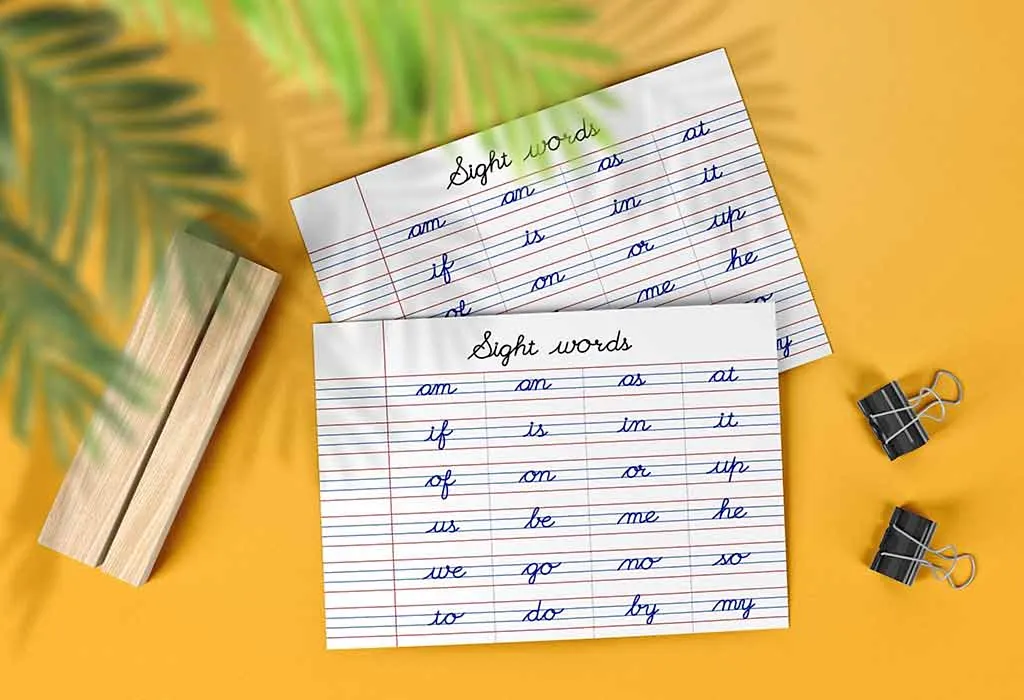 Sight words
am an as at
if is in it
of on or up
me he
Sight words
am an as at
if is in it
of on or up
us be me he
we go no so
to do by my